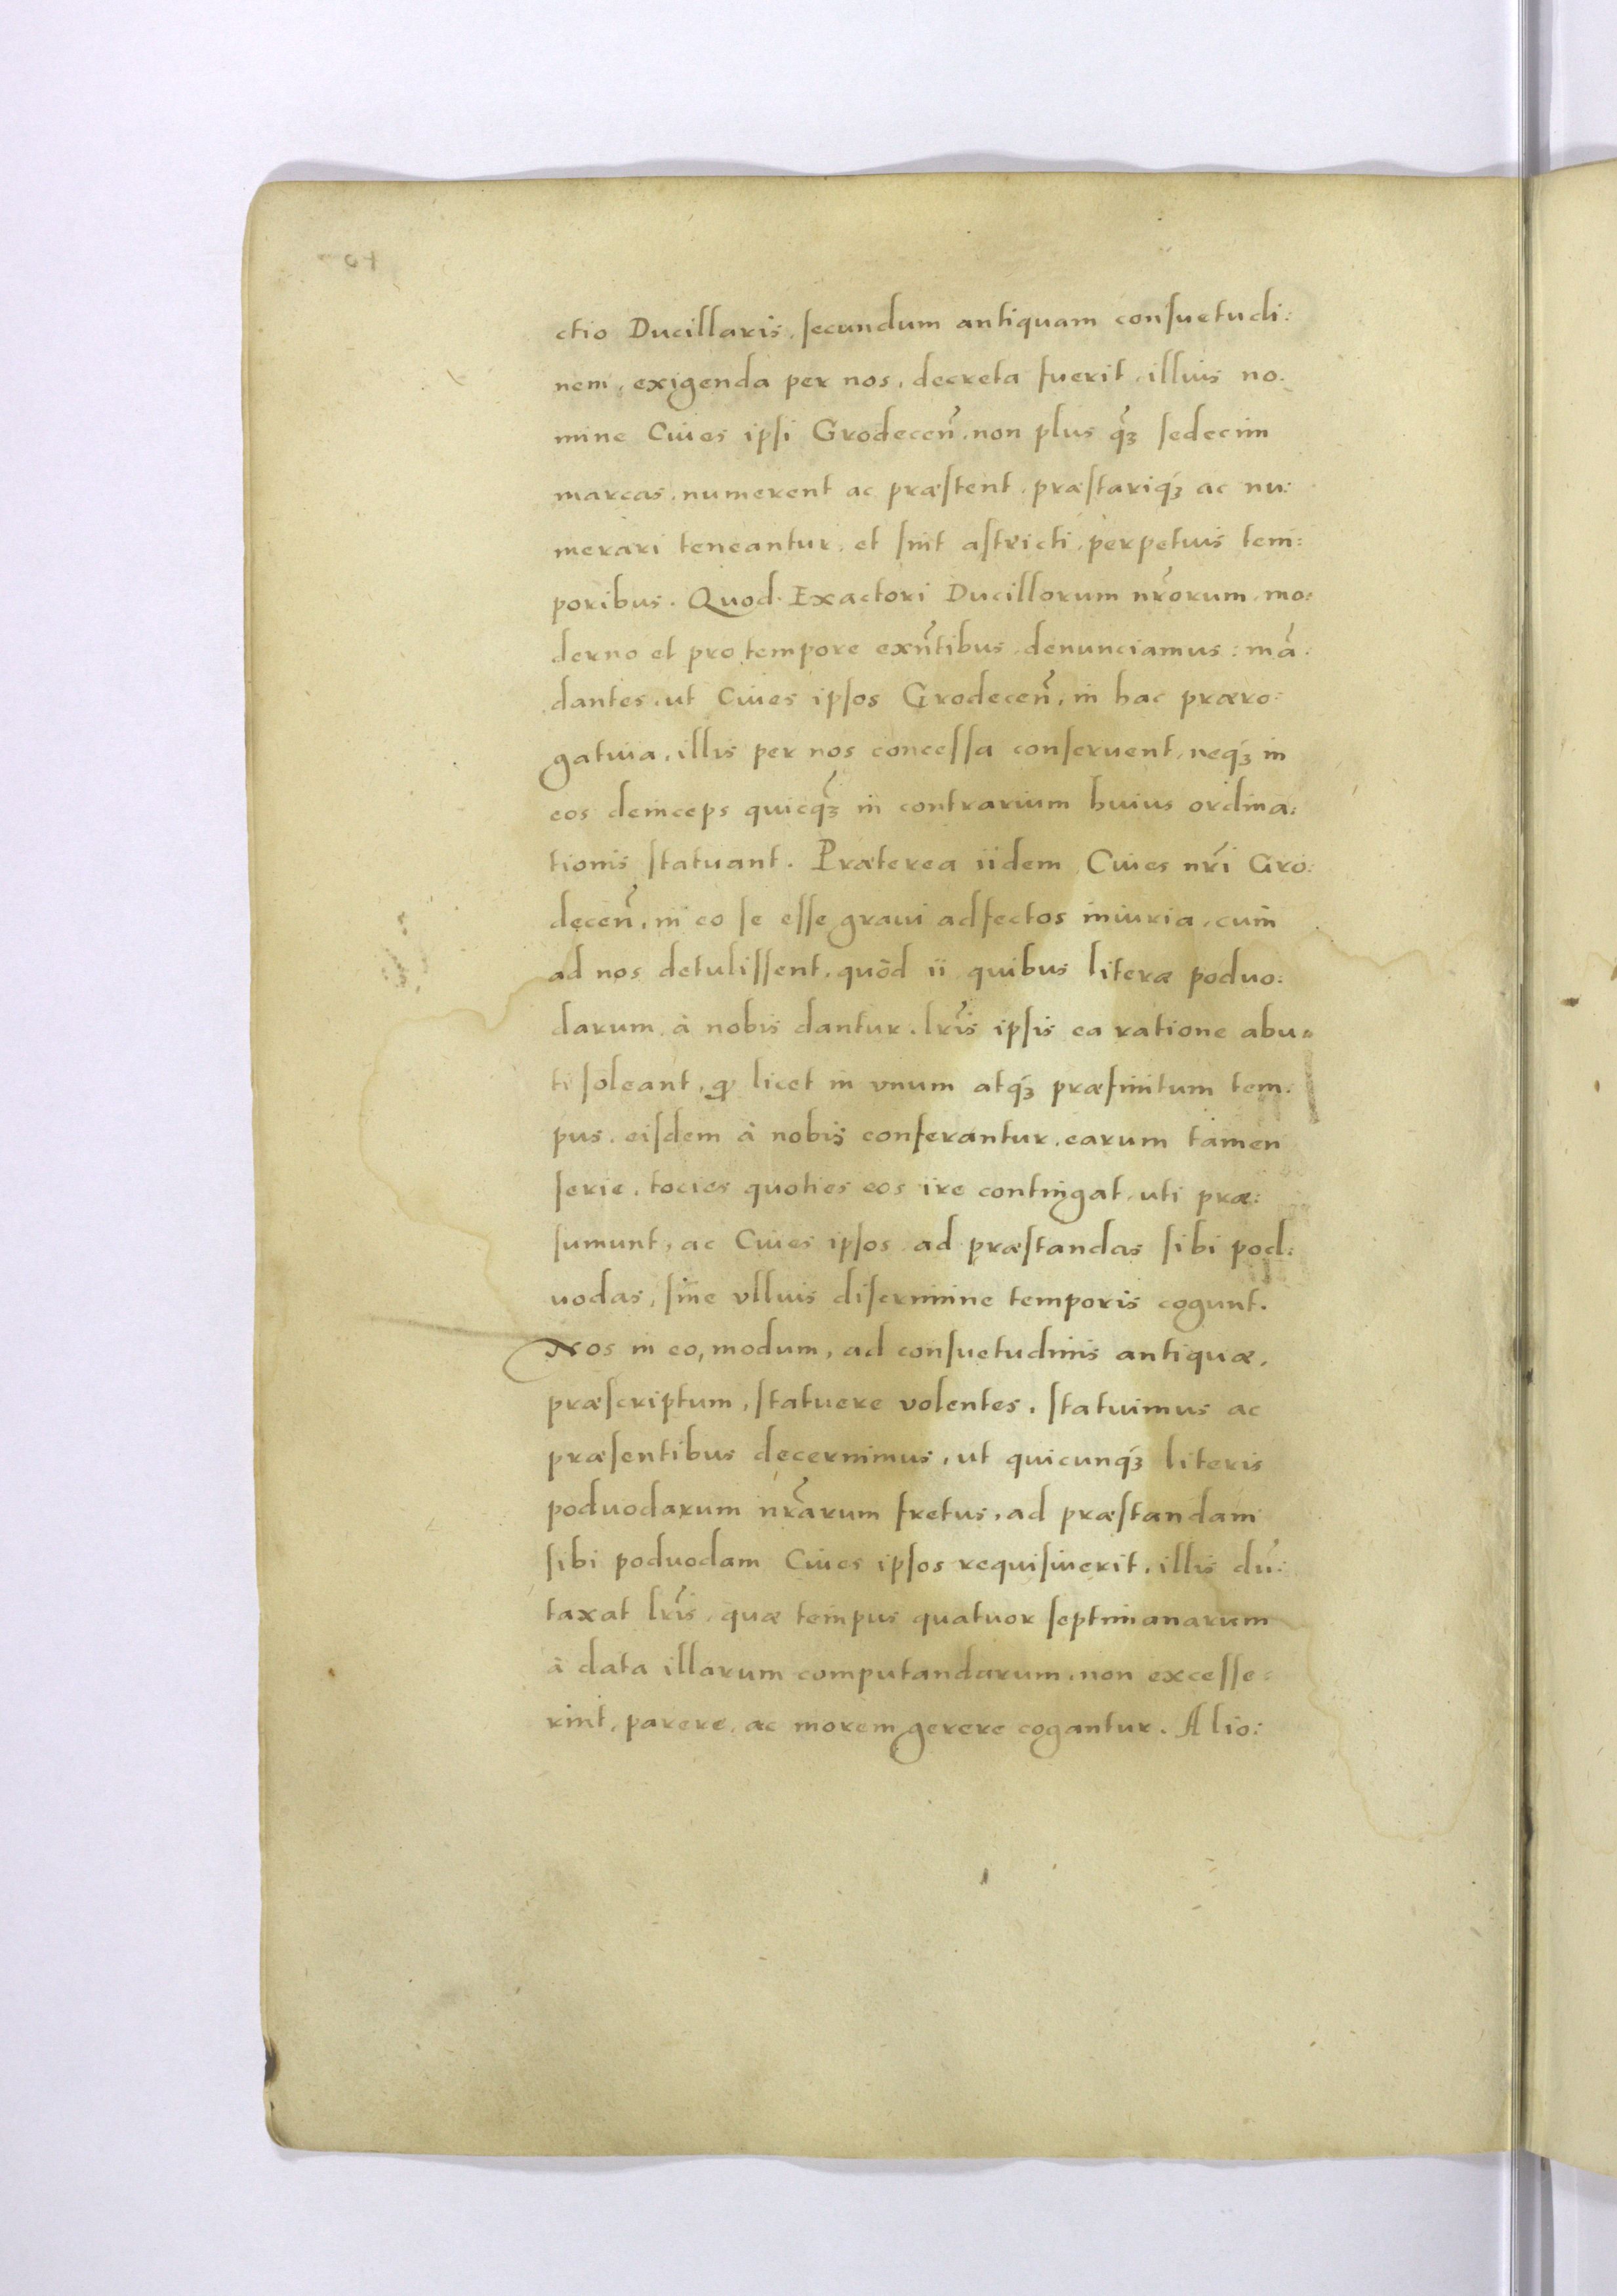 ctio Ducillaris, secundum antiquam consuetudi:
nem, exigenda per nos, decreta fuerit, illius no.
mine Ciues ipsi Grodeceñ. non plus q̃ꝫ sedecim
marcas, numerent ac præstent, præstariq́ꝫ ac nu:
merari teneantur, et sint astricti, perpetuis tem:
poribus. Quod Exactori Ducillorum nr̃orum, mo:
derno et pro tempore exñtibus, denunciamus: mã:
dantes, ut Ciues ipsos Grodeceñ, in hac præro:
gatiua, illis per nos concessa conseruent, neq́ꝫ in
eos deinceps quicq̃ꝫ in contrarium huius ordina:
tionis statuant. Præterea iidem Ciues nr̃i Gro:
deceñ, in eo se esse graui adfectos iniuria, cum
ad nos detulissent, quòd ii quibus literæ poduo:
darum à nobis dantur, lr̃is ipsis ea ratione abu-
ti soleant, ꝙ licet in vnum atq́ꝫ præfinitum tem:
pus, eisdem à nobis conferantur, earum tamen
serie, tocies quoties eos ire contingat, uti præ:
sumunt, ac Ciues ipsos ad præstandas sibi pod:
uodas, sine vllius discrimine temporis cogunt.
Nos in eo, modum, ad consuetudinis antiquæ,
præscriptum, statuere volentes, statuimus ac
præsentibus decernimus, ut quicunq́ꝫ literis
poduodarum nr̃arum fretus, ad præstandam
sibi poduodam Ciues ipsos requisiuerit, illis dũ:
taxat lr̃is, quæ tempus quatuor septimanarum
à data illarum computandarum, non excesse:
rint, parere, ac morem gerere cogantur. Alio: